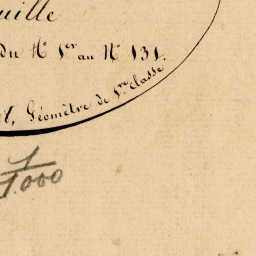 uille
du N° 1er au N° 131.
t, Géomètre de 1re classe
1
1.000